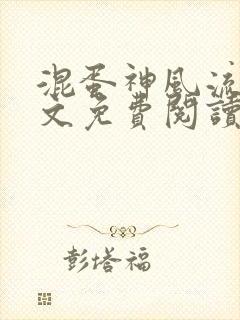 混蛋神風流
文免費閱讀
彭塔福